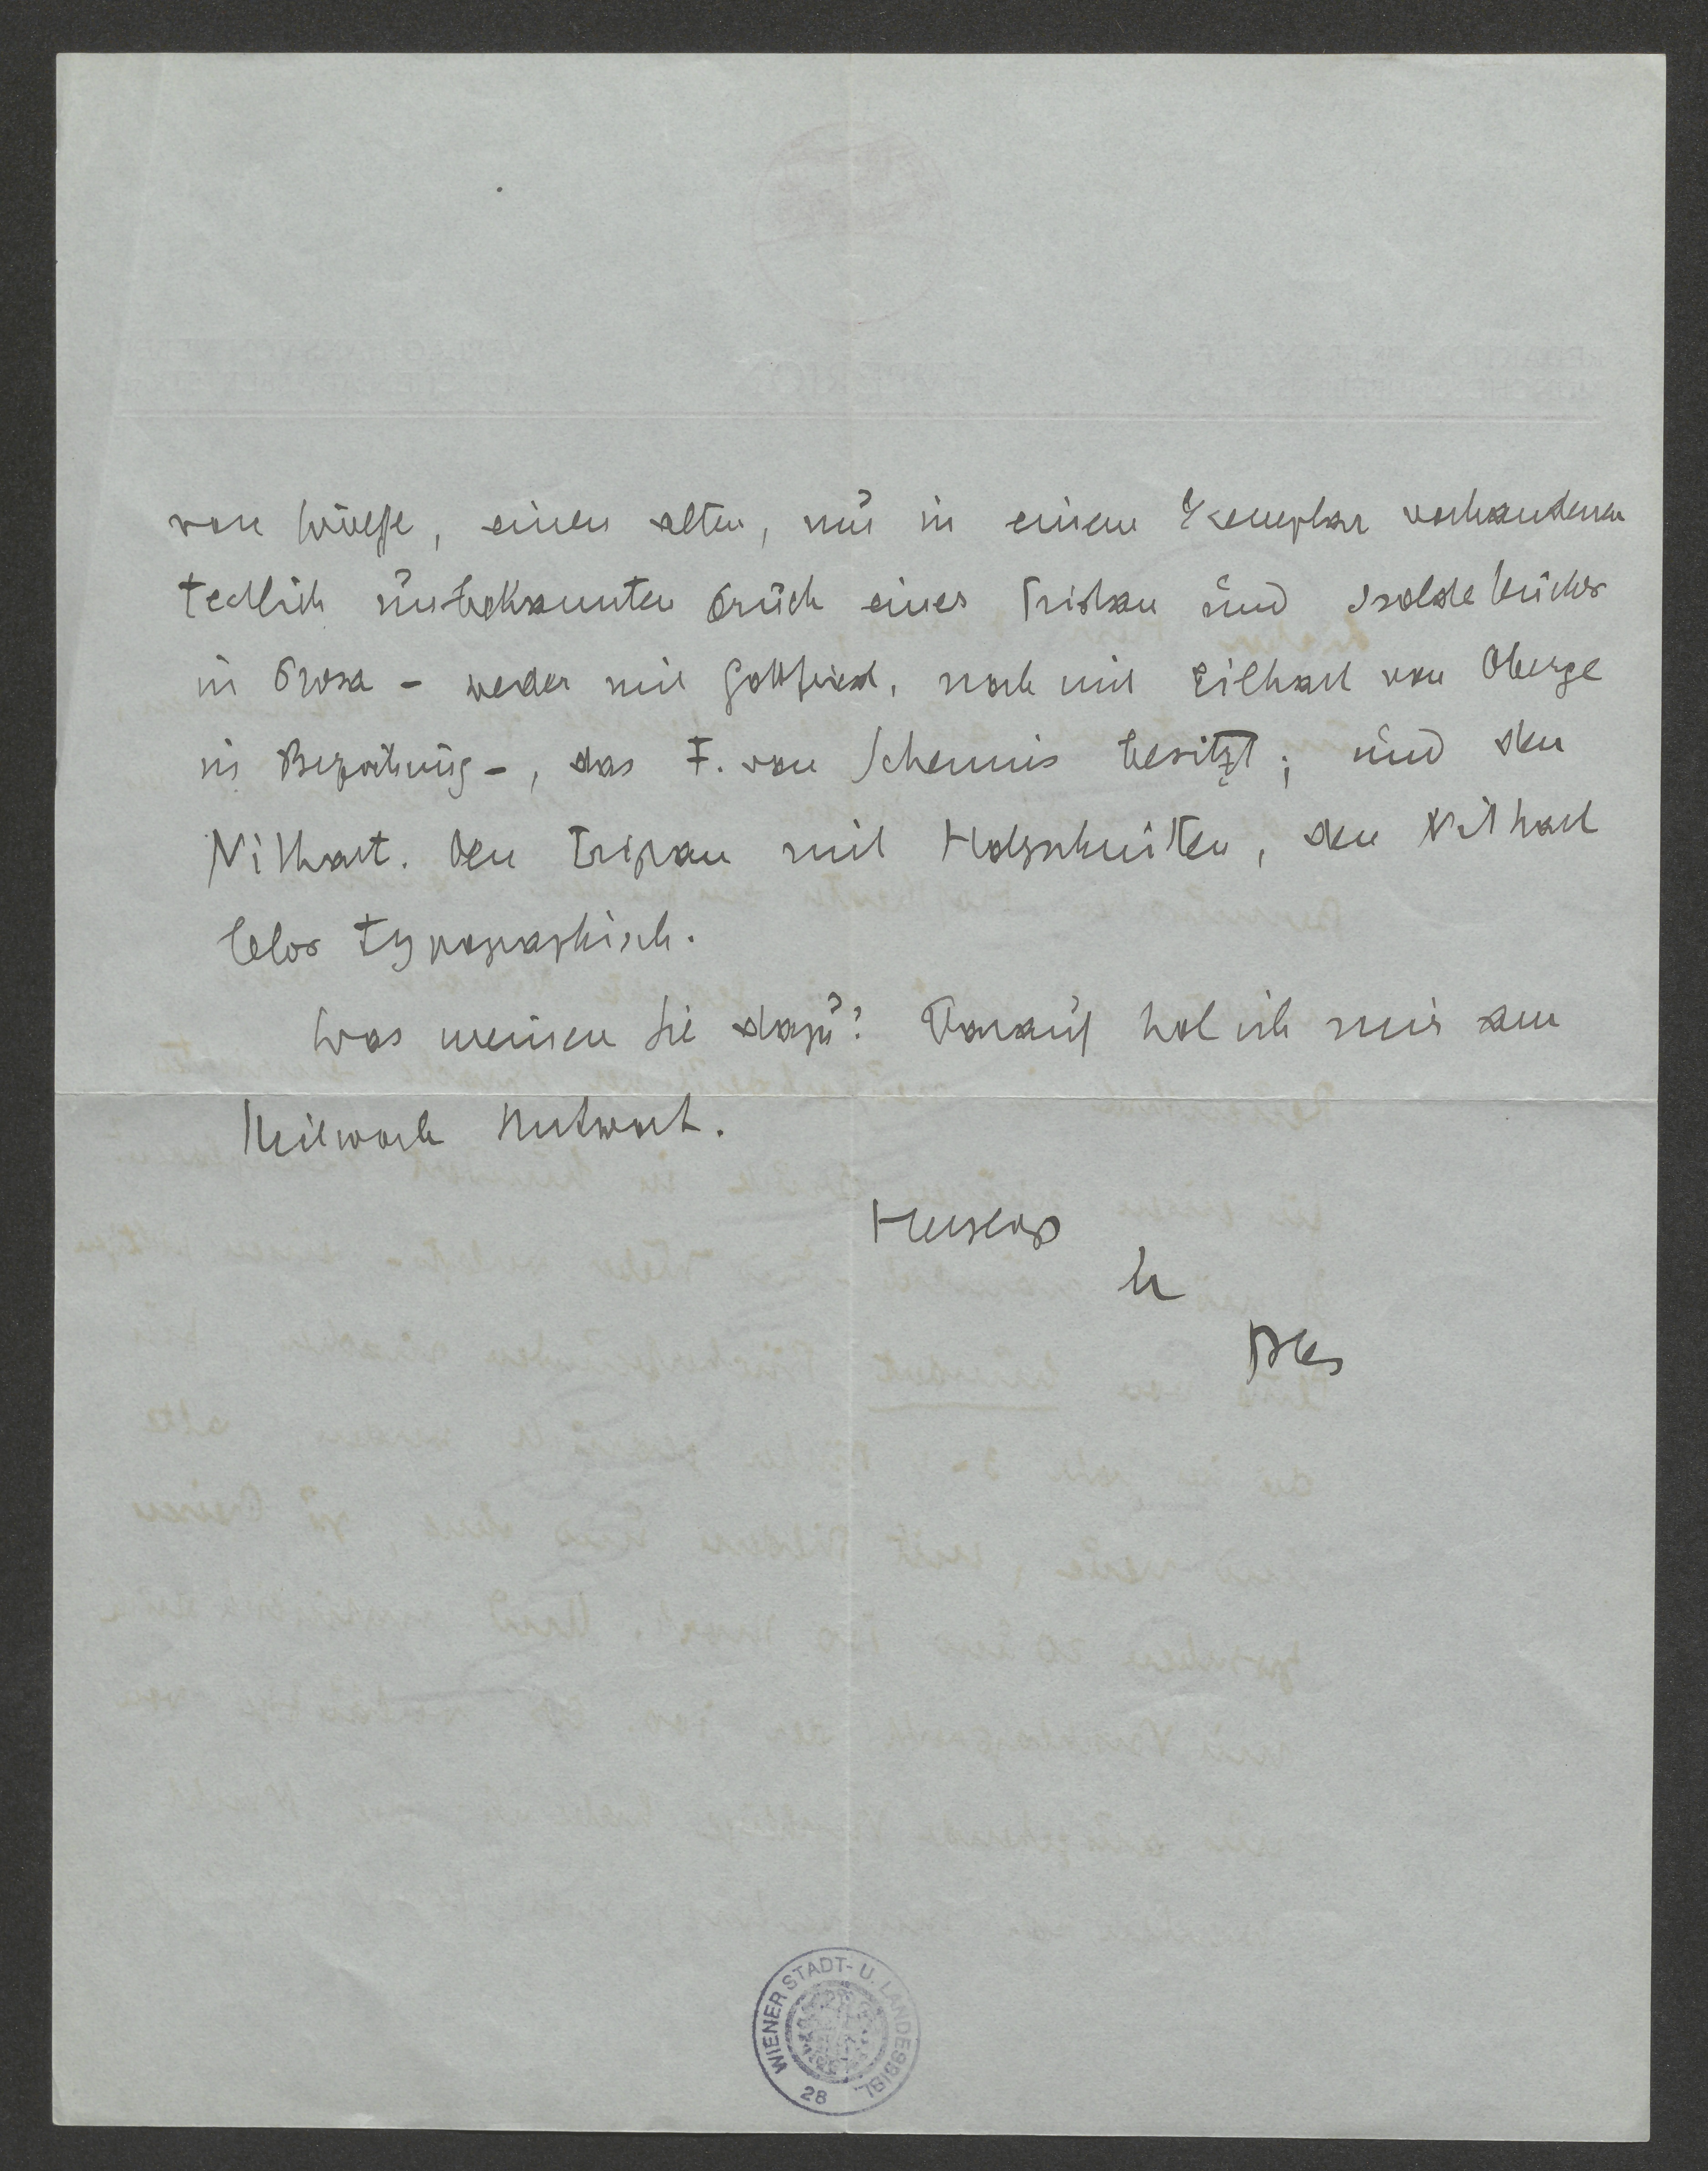 von Weisse, einen alten, nur in einem Exemplar vorhandenen
textlich unbekannten Druck eines Tristan und Isoldebuches
in Prosa – weder mit Gottfried, noch mit Eilhart von Oberge
in Beziehung –, das F. von Schennis besitzt; und den
Nithart. Den Tristan mit Holzschnitten, den Nithart
blos typographisch.
Was meinen Sie dazu? Darauf hol ich mir am
Mittwoch Antwort.
Herzlichst
Ihr
Blei
WIENER STADT- U. LANDESBIBL.
28